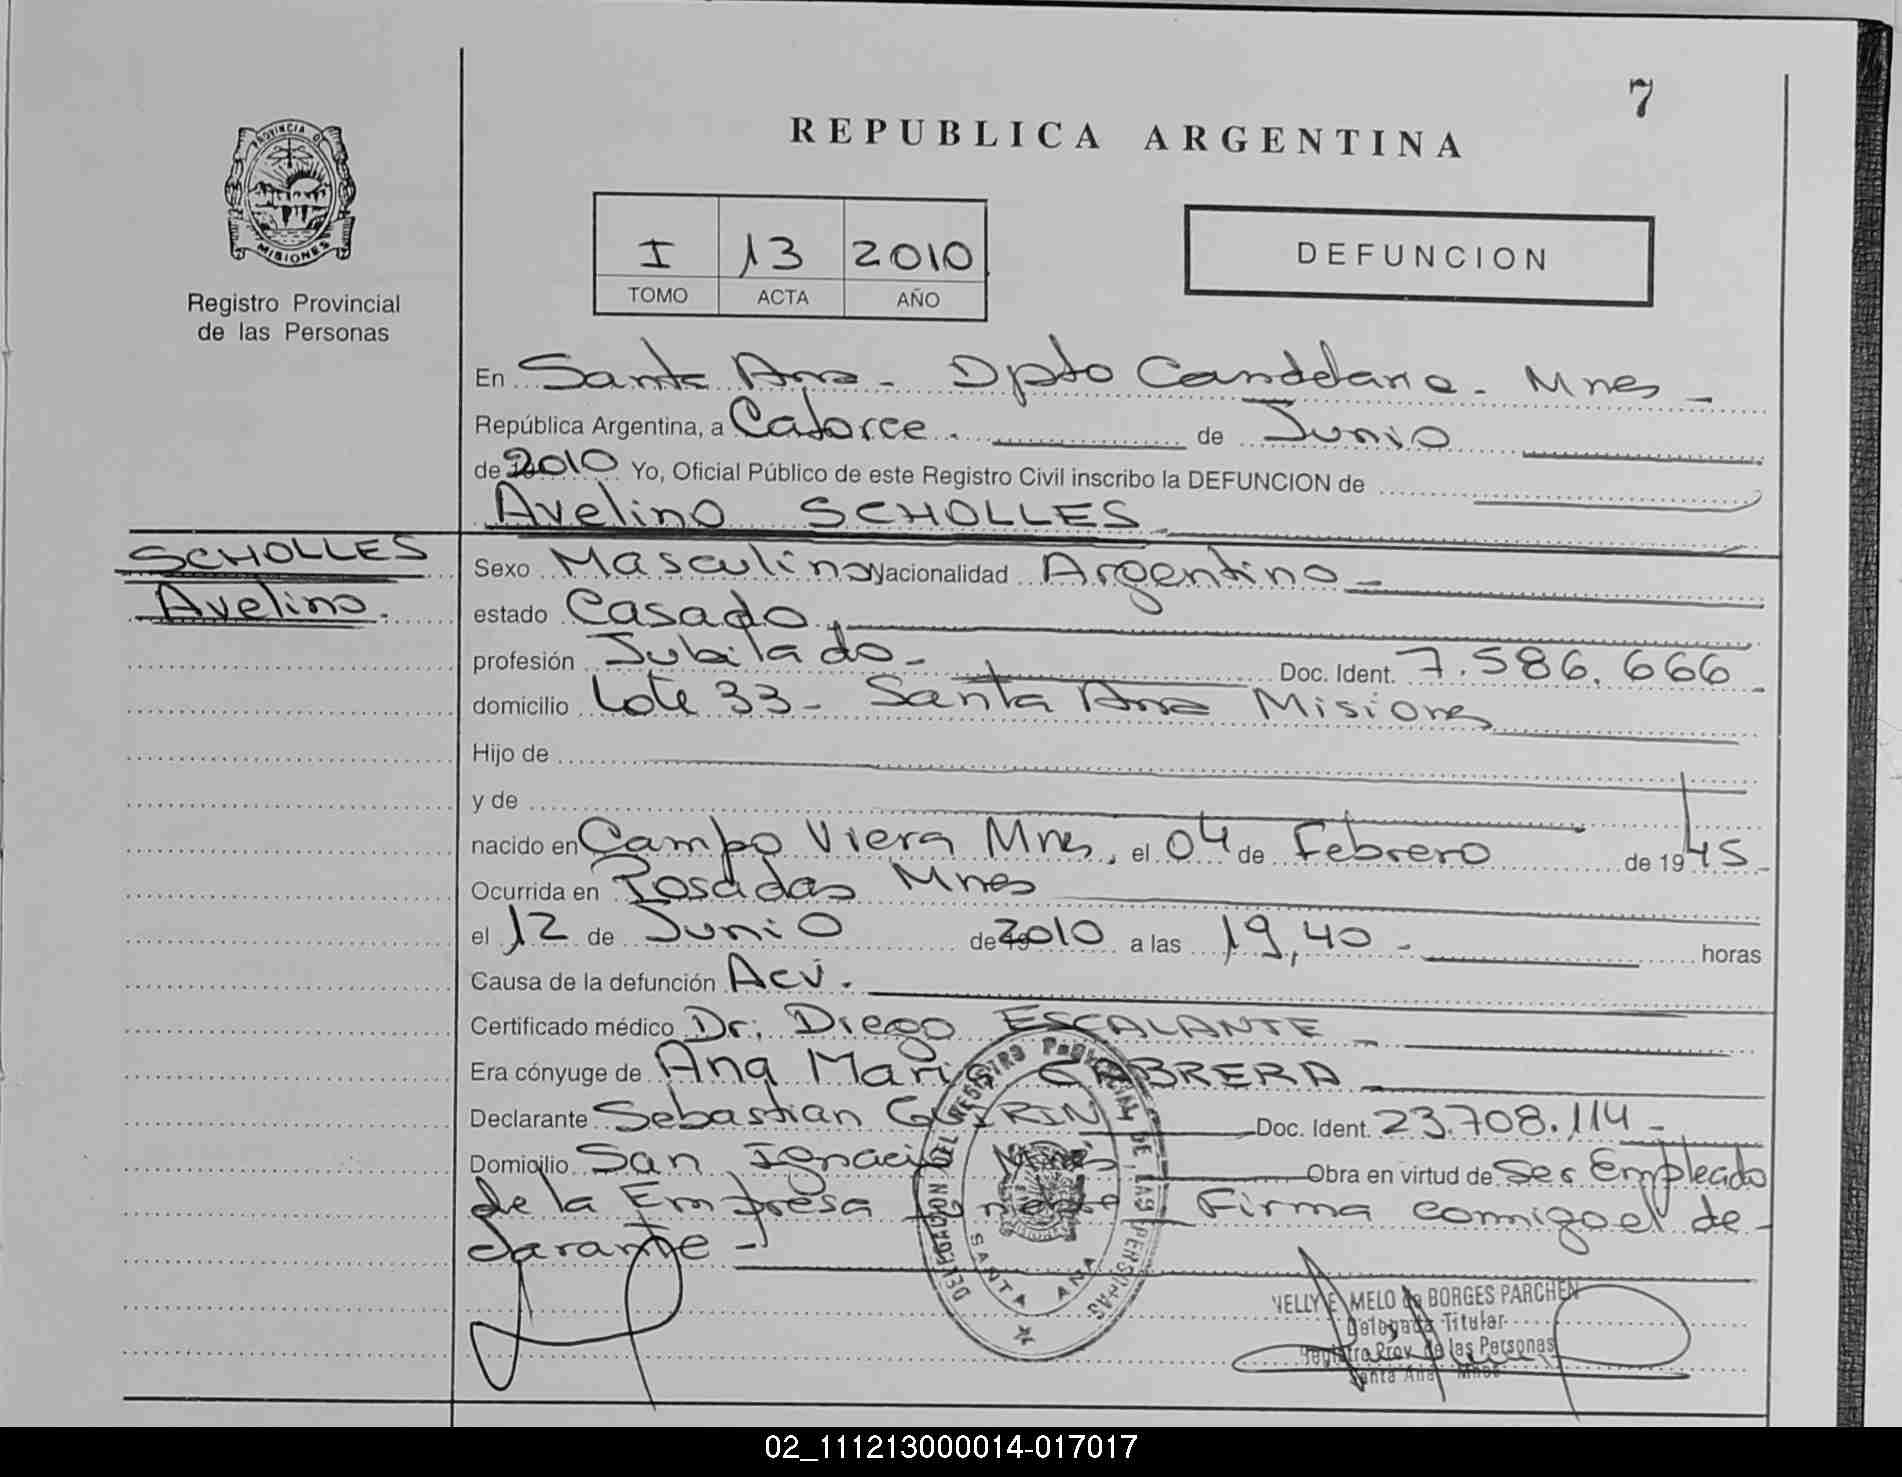 7
REPUBLICA ARGENTINA
PROVINCIA DE
MISIONES
Registro Provincial
de las Personas
I 13 2010
TOMO ACTA AÑO
DEFUNCION
En Santa Ana - Dpto Candelaria - Mnes -
República Argentina, a Catorce. de Junio
de 2010 Yo, Oficial Público de este Registro Civil inscribo la DEFUNCION de
Avelino SCHOLLES
SCHOLLES
Avelino.
Sexo Masculino Nacionalidad Argentino -
estado Casado.
profesión Jubilado - Doc. Ident. 7.586.666
domicilio Lote 33 - Santa Ana Misiones
Hijo de
y de
nacido en Campo Viera Mnes, el 04 de Febrero de 1945 -
Ocurrida en Posadas Mnes
el 12 de Junio de 2010 a las 19,40 - horas
Causa de la defunción Acv.
Certificado médico Dr. Diego ESCALANTE -
Era cónyuge de Ana Maria CABRERA
Declarante Sebastian Doc. Ident. 23.708.114 -
Domicilio San Ignacio Mnes Obra en virtud de Ser Empleado
de la Empresa Firma conmigo el de-
clarante -
DELEGACION DEL REGISTRO PROVINCIAL DE LAS PERSONAS
SANTA ANA
NELLY E. MELO de BORGES PARCHEN
Delegada Titular
Registro Prov. de las Personas
Santa Ana Mnes
02_111213000014-017017